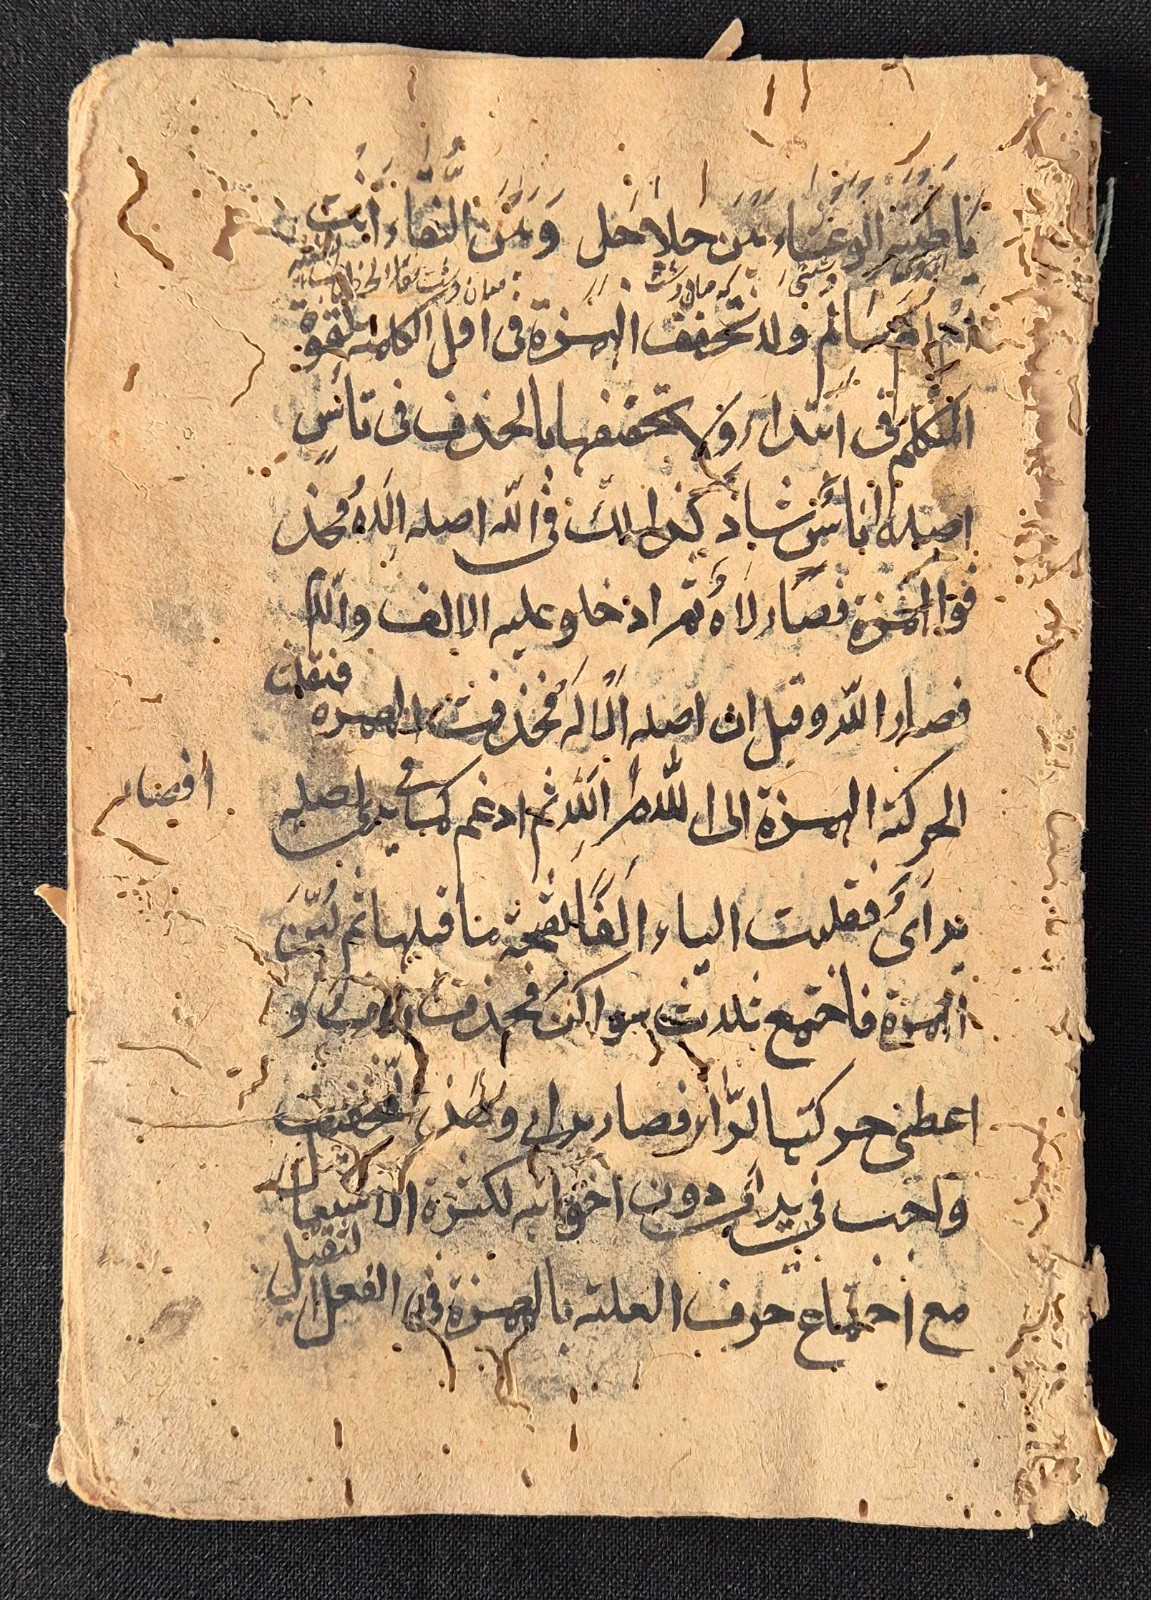 يا ظبية الوعساء بين جلاجل وبين النقاء أأنت
أم أم سالم ولا تخفف الهمزة فى اول الكلمة لقوة
المتكلم فى ابتداء ولا تخفيفها بالحذف فى ناس
اصله اناس شاذ كذلك فى الله اصله الاه فحذ
فوا الهمزة فصار لاه ثم ادخلو عليه الالف واللام
فصار الله وقيل ان اصله الاله فحذفت الهمزة فنقلت
الحركة الهمزة الى اللام الله ثم ادغم كما فى يرى اصله
يرأى فقلبت الياء الفا لفتحة ما قبلها ثم لين
الهمزة فاجتمع ثلاث سواكن فحذفت الالف و
اعطى حركتها للراء فصار يرى وهذا التخفيف
واجب فى يرى دون اخواته لكثرة الاستعمال
مع اجتماع حرف العلة بالهمزة فى الفعل الثقيل